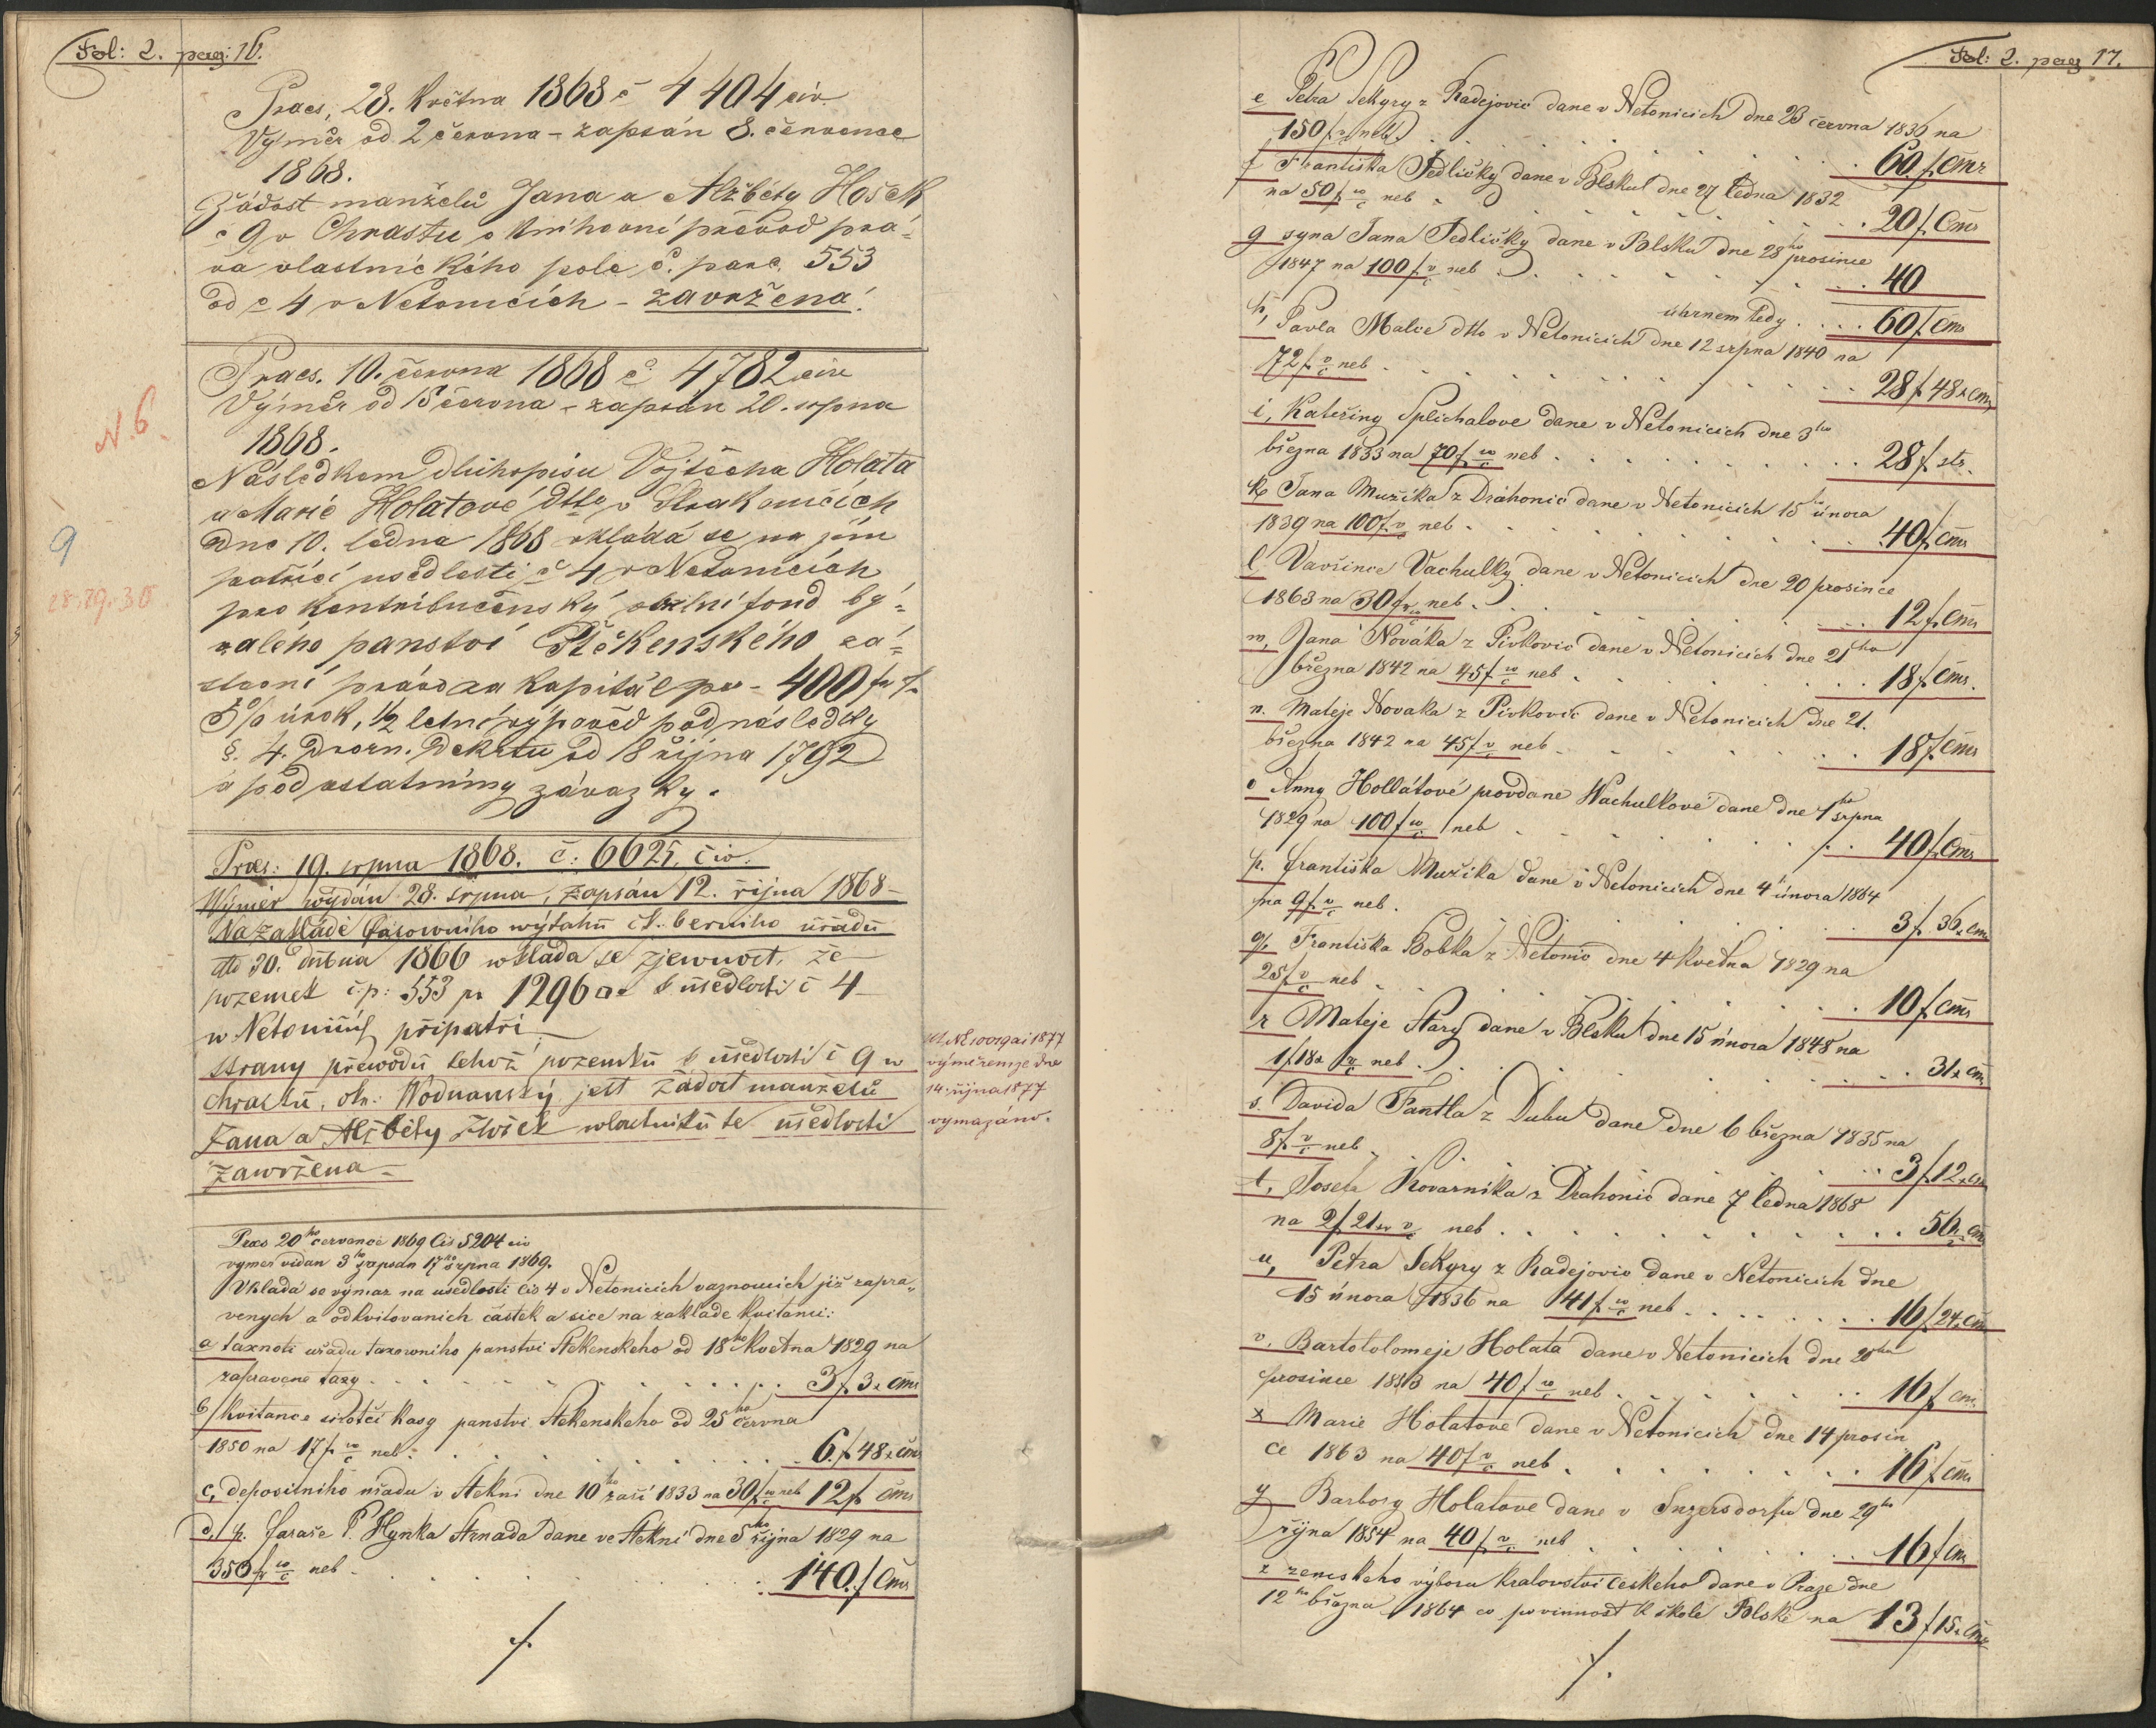 Fol: 2. pag: 16.
Praes, 28. Května 1868 č 4404 civ.
Výměr od 2 června – zapsán 8. července
1868.
Žádost manželů Jana a Alžběty Hošek
č 9 v Chrastu o knihovní převod prá-
va vlastnického pole č. parc. 553
od č 4 v Netonicích – zavržena!
Praes. 10. června 1868 č 4782 civ
Výměr od 15 června – zapsán 20. srpna
1868.
N. 6.
Následkem dluhopisu Vojtěcha Holata
a Marie Holatové dtto v Strakonicích
dne 10. ledna 1868 vkládá se na jim
9
patřící usedlosti č 4 v Netonicích
28.29.30
pro kontribučenský obilní fond bý-
valého panství Štěkenského zá-
stavní právo za kapitál pr – 400 f
5% úrok, 1/2 letní výpověd pod následky
§. 4. Dvorn. Dekretu od 18 října 1792
a pod ostatními závazky.
Praes: 19. srpna 1868. č: 6625. civ.
Wýměr wýdán 28. srpna, zapsán 12. října 1868 –
Na základě čásowního wýtahu čk. berního úřadu
dto 30. dubna 1866 wkládá se zjewnost, že
pozemek č.p: 553 pr 1296 □° k úsedlosti č 4
w Netonicích připatří
strany přewodu tehož pozemku k úsedlosti č 9 w
Chrastu, okr: Wodnanský jest žádost manželů
Jana a Alžběty Hošek wlastníků té úsedlosti
zawržena –
výměrem ze dne
14. října 1877
vymazáno.
Praes 20ho července 1869 čis 5204 civ
vyměr vidan 3ho zapsan 17ho srpna 1869.
Vklada se vymaz na usedlosti čis 4 v Netonicich vaznoucich již zapra-
venych a odkvitovanich častek a sice na zaklade kvitanci:
a taxnoti uřadu taxovniho panstvi Stekenskeho od 18ho Května 1829 na
zapravene taxy . . . . . 3 f 3 x čms
b/ kvitance sirotči kasy panstvi Stekenskeho od 25ho června
1850 na 17 f w/c neb . . . . . 6 f 48 x čms
c, depositniho úřadu v Stekni dne 10ho zaři 1833 na 30 f w/c neb 12 f čms
d, p. faraře P. Hynka Strnada dane ve Stekni dne 5ho řijna 1829 na
350 f w/c neb . . . . . 140. f čms
./.
Fol: 2. pag 17.
e Petra Sekyry z Radejovic dane v Netonicich dne 23 června 1836 na
150 f w/c neb . . . . . 60 f čms
f Františka Jedličky dane v Blsku dne 27 ledna 1832
na 50 f w/c neb . . . . . 20 f čms
g syna Jana Jedličky dane v Blsku dne 28ho prosince
1847 na 100 f w/c neb . . . . . 40
úhrnem tedy . . . . 60 f čms
h, Pavla Malce dtto v Netonicich dne 12 srpna 1840 na
72 f w/c neb . . . . . 28 f 48 x čms
i, Kateřiny Splichalove dane v Netonicich dne 3ho
března 1833 na 70 f w/c neb . . . . . 28 f stř.
k, Jana Mužika z Drahonic dane v Netonicich 15ho února
1839 na 100 f w/c neb . . . . . 40 f čms
l. Vavřince Vachulky dane v Netonicich dne 20 prosince
1863 na 30 f w/c neb . . . . . 12 f čms
m, Jana Nováka z Pivkovic dane v Netonicich dne 21ho
března 1842 na 45 f w/c neb . . . . . 18 f čms.
n. Mateje Novaka z Pivkovic dane v Netonicich dne 21.
března 1842 na 45 f w/c neb . . . . . 18 f čms
o Anny Hollátové provdane Wachulkové dane dne 1ho srpna
1829 na 100 f w/c neb . . . . . 40 f čms
p. Františka Mužika dane v Netonicich dne 4 února 1864
na 9 f w/c neb . . . . . 3 f 36 x čms
q. Františka Bobka z Netonic dne 4 Května 1829 na
25 f w/c neb . . . . . 10 f čms
r Mateje Stary dane v Blsku dne 15 února 1848 na
1 f 18 x w/c neb . . . . . 31 x čms
s. Davida Fantla z Dubu dane dne 6 března 1835 na
8 f w/c neb . . . . . 3 f 12 x čms
t, Josefa Kovarnika z Drahonic dane 7 ledna 1868
na 2 f 21 x w/c neb . . . . . 56 x čms
u, Petra Sekyry z Radejovic dane v Netonicich dne
15 února 1836 na 41 f w/c neb . . . . . 16 f 24 x čms
v. Bartotolomeje Holata dane v Netonicich dne 20ho
prosince 1853 na 40 f w/c neb . . . . . 16 f čms
x Marie Holatove dane v Netonicich dne 14 prosin
ce 1863 na 40 f w/c neb . . . . . 16 f čms
y Barbory Holatove dane v Inzersdorfu dne 29ho
řijna 1854 na 40 f w/c neb . . . . . 16 f čms
z zemskeho výboru kralovstvi českeho dane v Praze dne
12ho března 1864 co povinnost k škole Blské na 13 f 15 x čms
./.